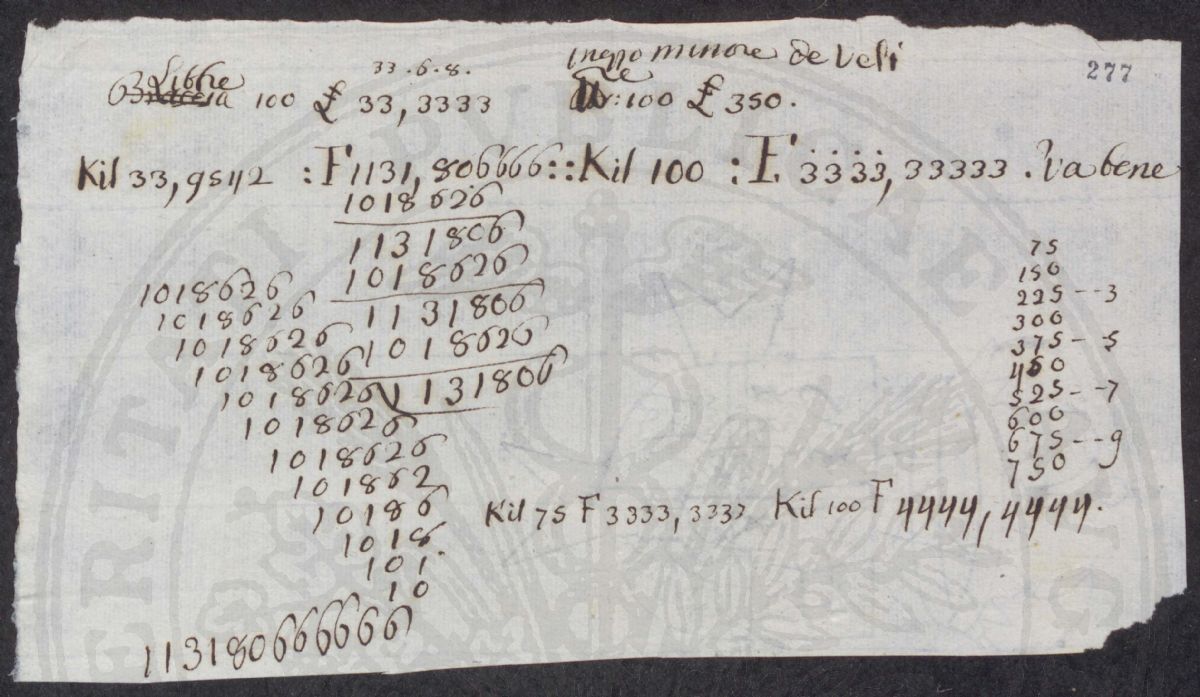 33.6.8.
Libbre
Braccia 100 £ 33,3333
Ingo minore de Veli
100 £ 350.
277
Kil 33,9542 : F 1131,806666 :: Kil 100 : F 3333,33333 . Va bene
1018626
1131806
1018626
1131806
1018626
1131806
1018626
1018626
1018626
1018626
1018626
1018626
1018626
101862
10186
1018
101.
10
113180666666
75
150
225--3
300
375-5
450
525--7
600
675--9
750
Kil 75 F 3333,3333 Kil 100 F 4444,4444.